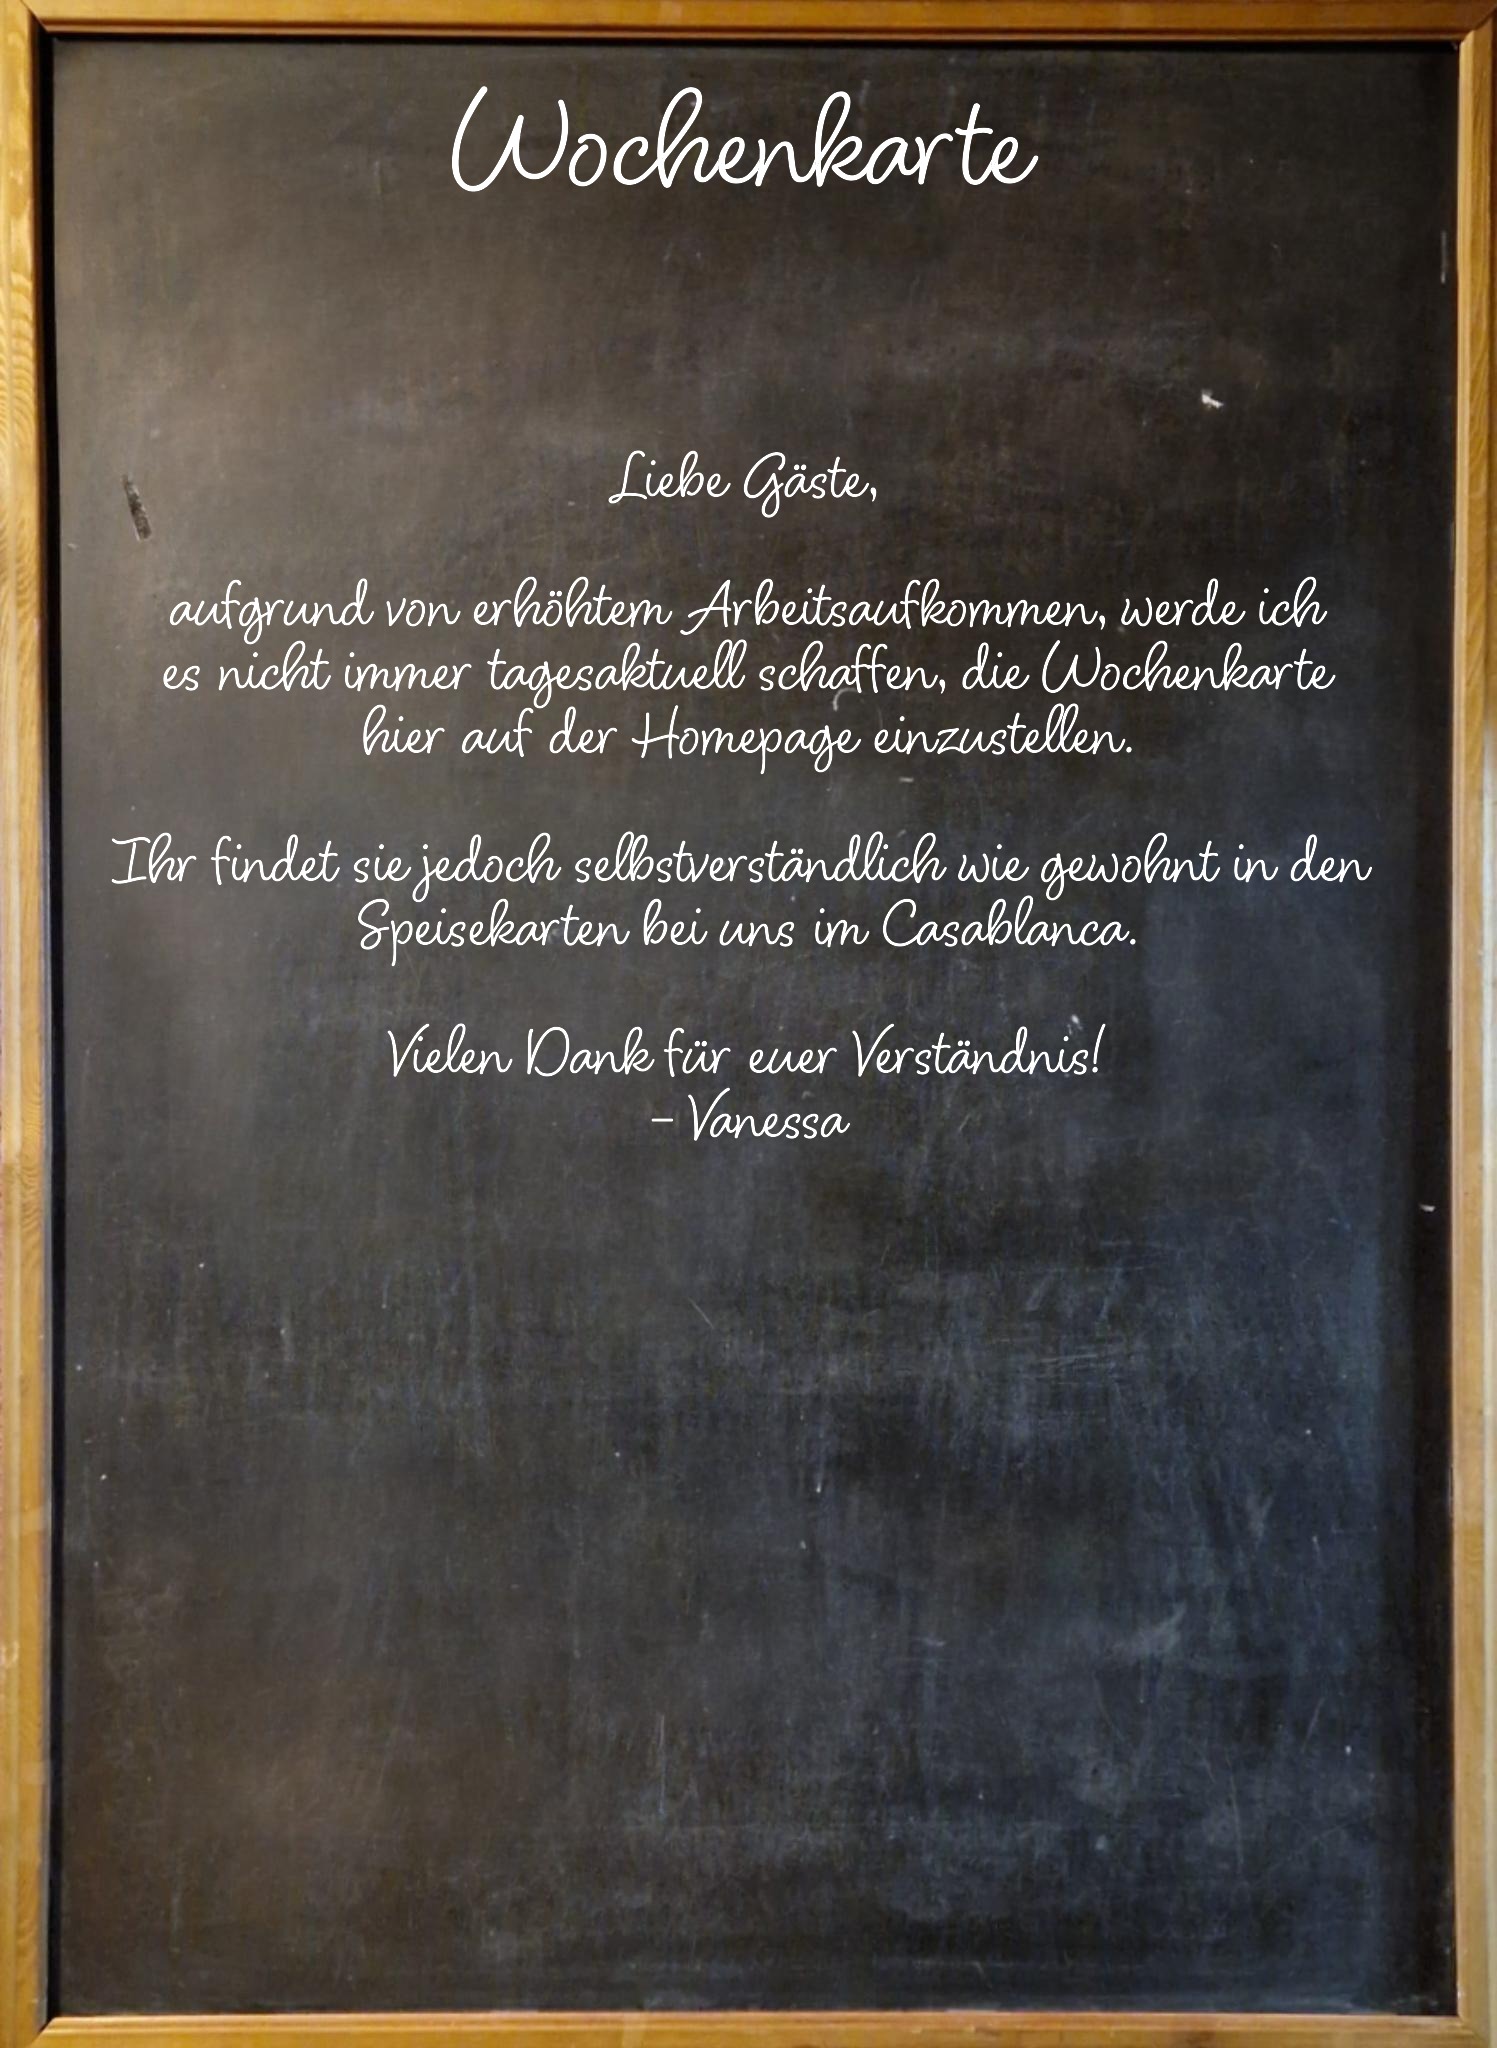 Wochenkarte
Liebe Gäste,
aufgrund von erhöhtem Arbeitsaufkommen, werde ich
es nicht immer tagesaktuell schaffen, die Wochenkarte
hier auf der Homepage einzustellen.
Ihr findet sie jedoch selbstverständlich wie gewohnt in den
Speisekarten bei uns im Casablanca.
Vielen Dank für euer Verständnis!
- Vanessa